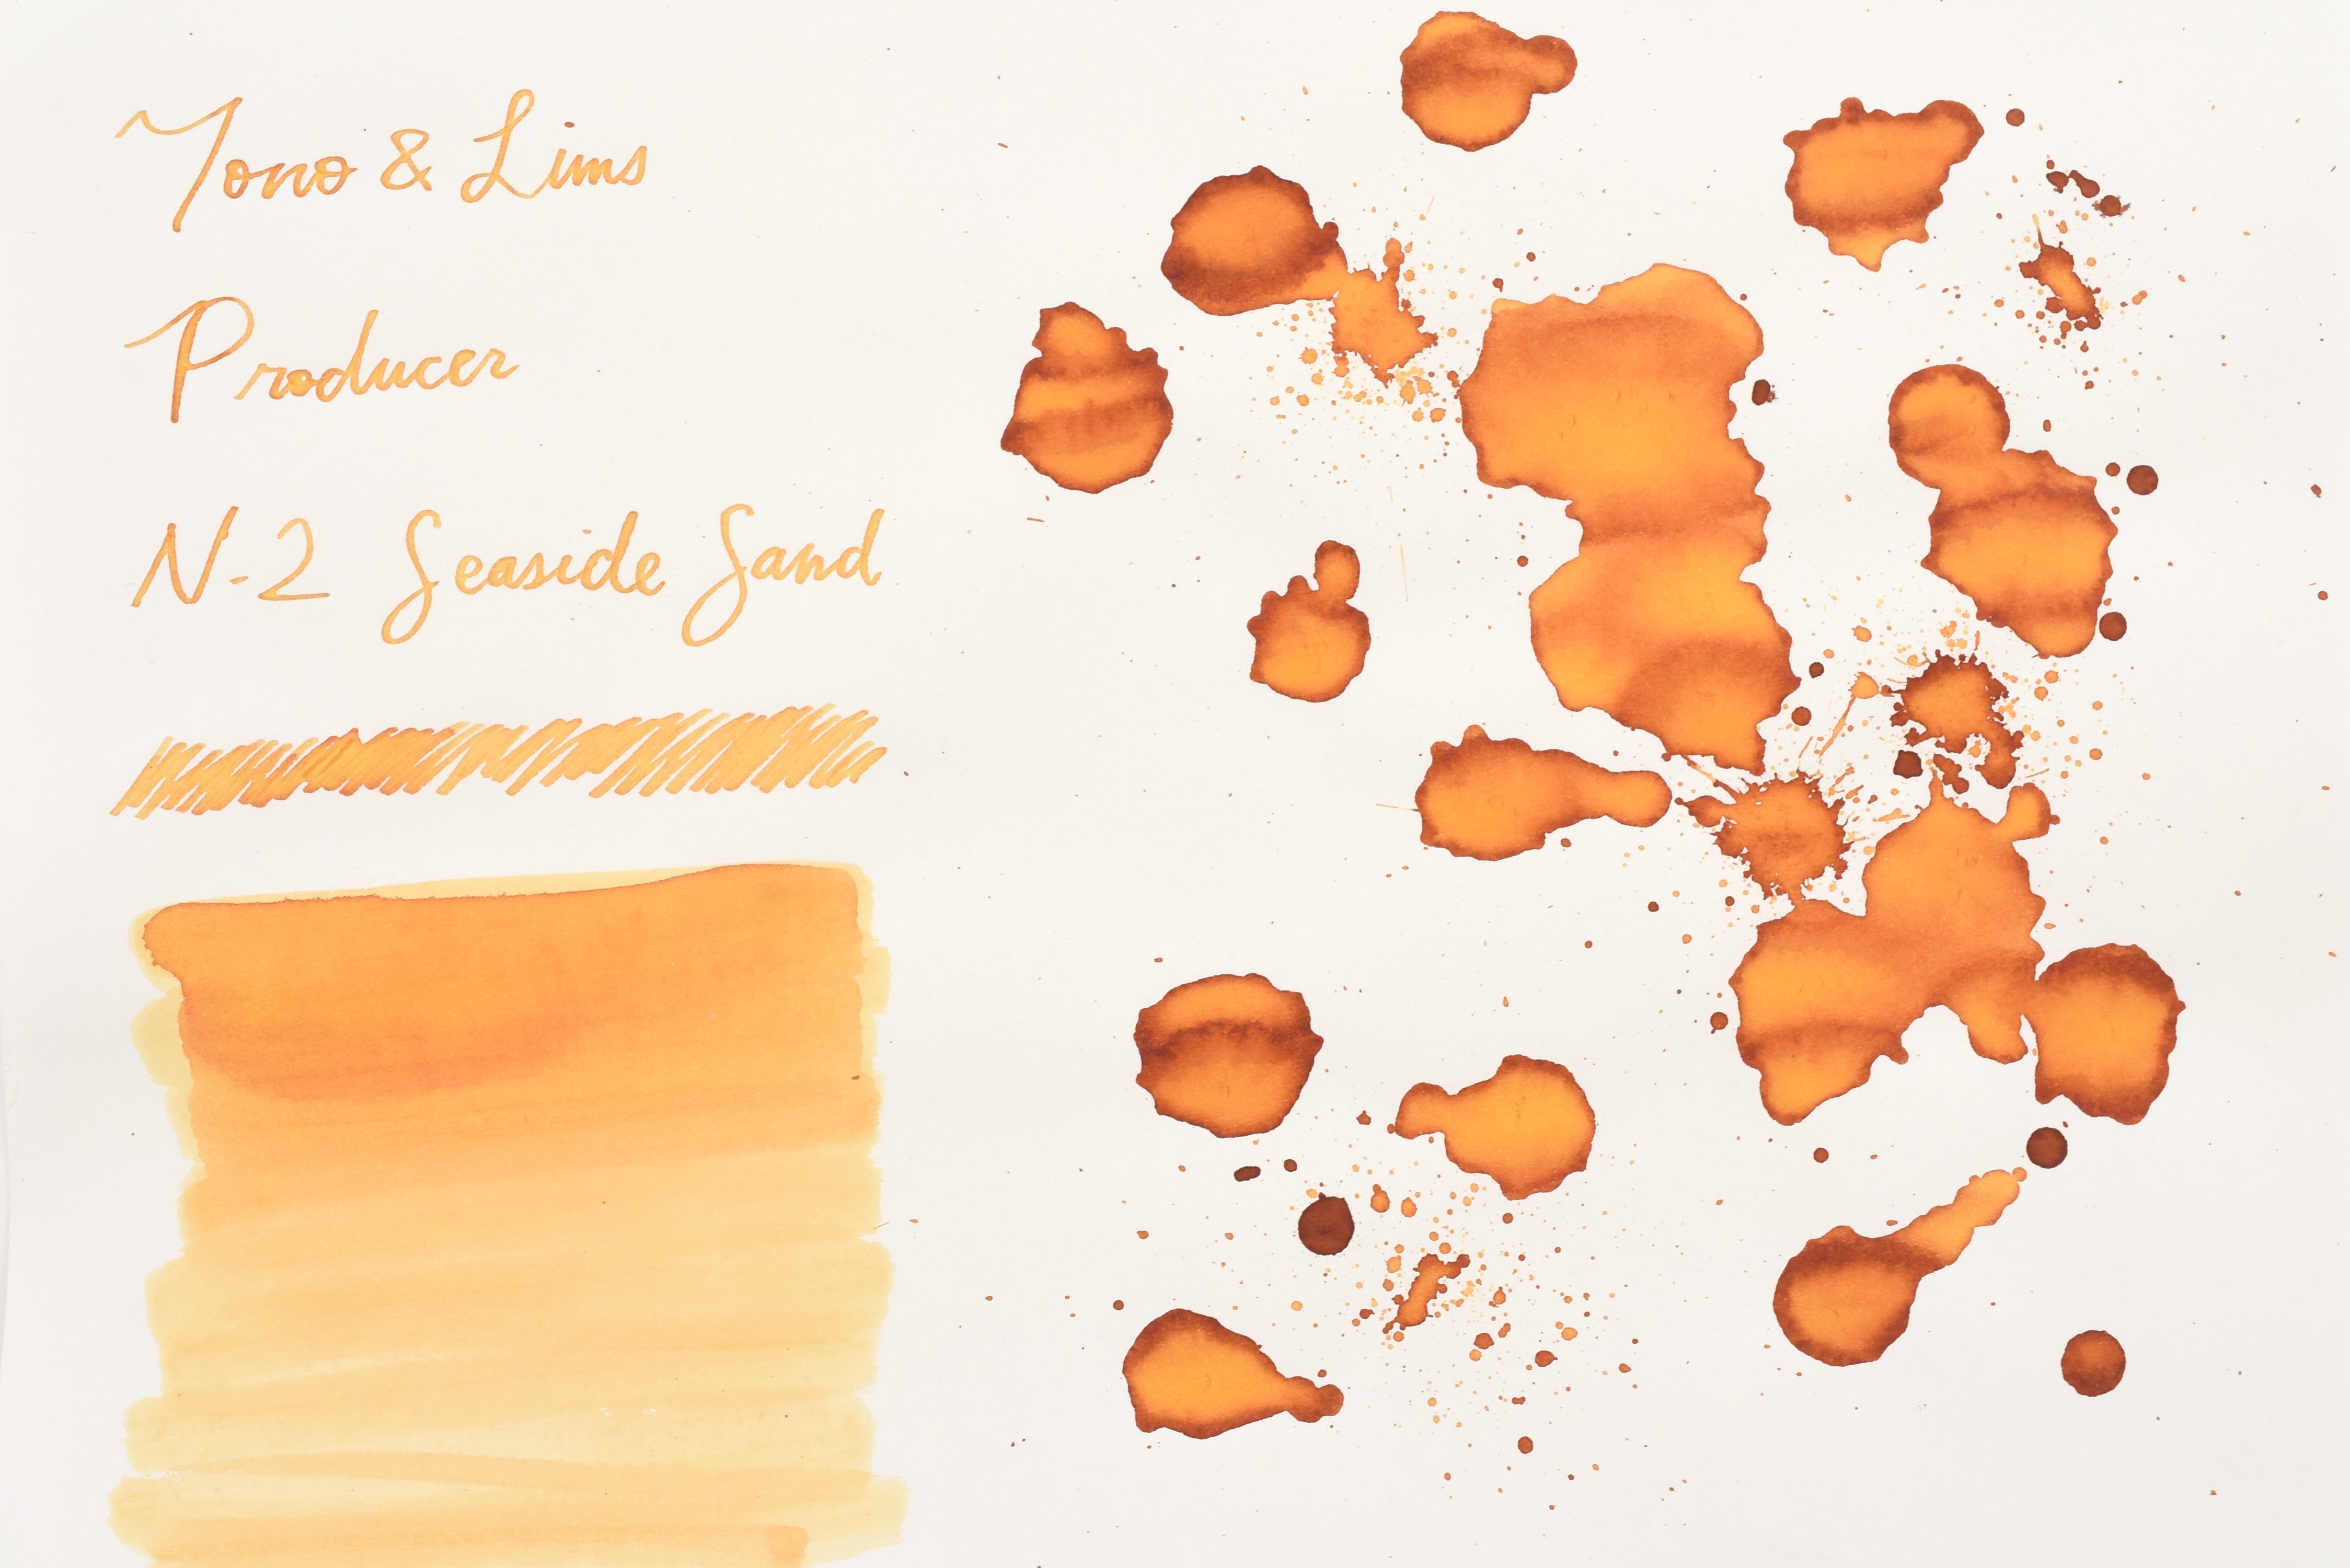 Tono & Lims
Producer
N-2 Seaside Sand